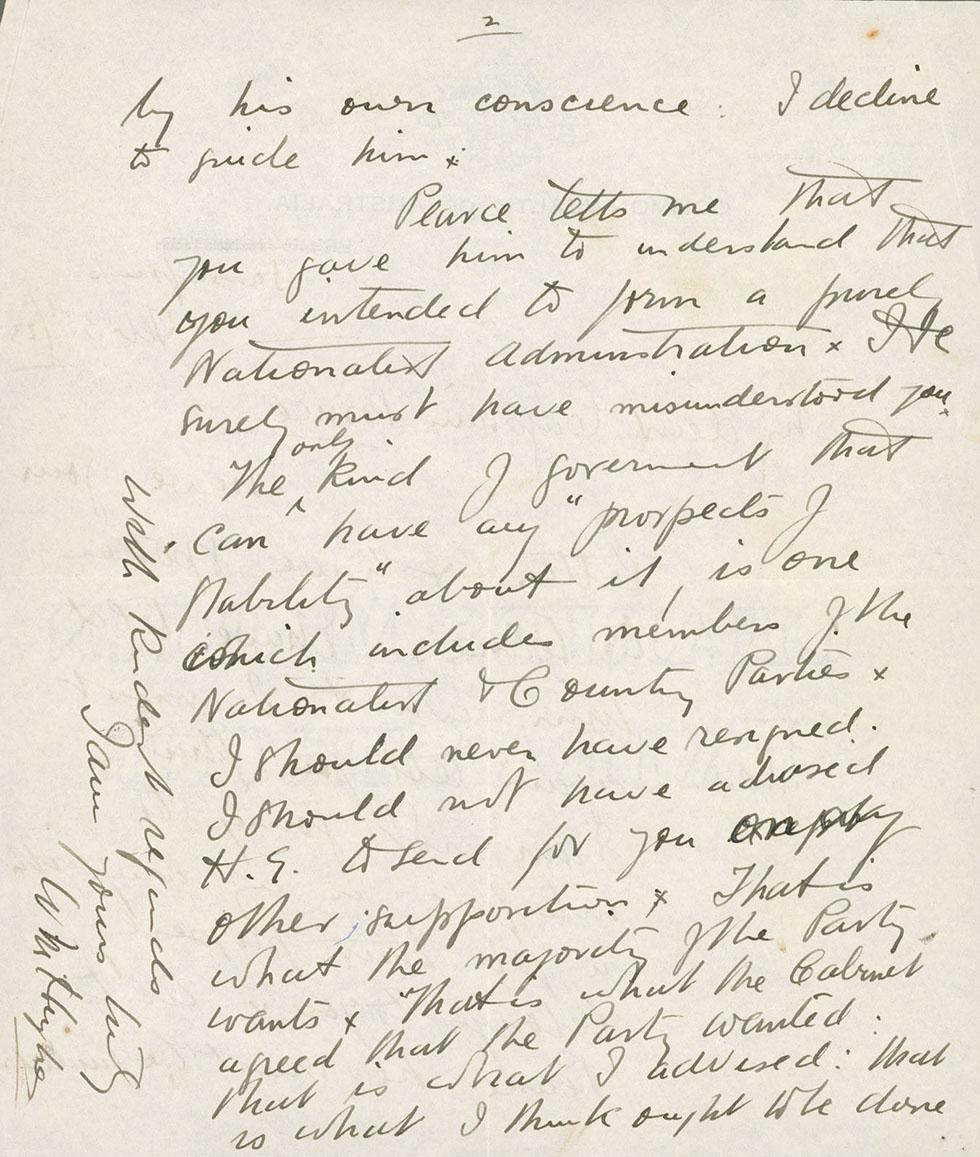 2
by his own conscience: I decline
to guide him x
Pearce tells me that
you gave him to understand that
you intended to form a purely
Nationalist Administration x He
surely must have misunderstood you.
only
The ^ kind of goverment that
can have any "prospects of
stability" about it, is one
which includes members of the
Nationalist & Country Parties x
I should never have resigned.
I should not have advised
H.E. to send for you on any
other supposition x That is
what the majority of the Party
wants x That is what the Cabinet
agreed that the Party wanted:
that is what I advised: that
is what I think ought to be done
With kindest regards
I am yours truly
W M Hughes